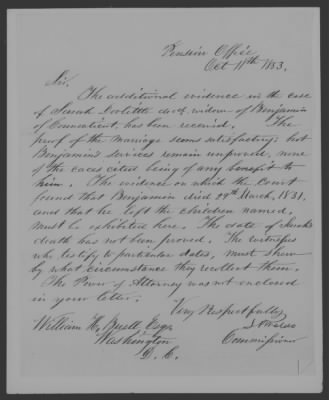 Pension Office
Oct 11th 1853.
Sir,
The additional evidence in the case
of Sarah Doolittle decd, widow of Benjamin
of Connecticut, has been received. The
proof of the marriage seems satisfactory but
Benjamin's services remain unproved, none
of the cases cited being of any benefit to
him. The evidence on which the Court
found that Benjamin died 28th March, 1831,
and that he left the children named,
must be exhibited here. The date of Sarah's
death has not been proved. The witnesses
who testify to particular dates, must show
by what circumstance they recollect them.
The Power of Attorney was not enclosed
in your letter.
Very Respectfully
William H. Esqr
Washington
Commissioner
D. C.